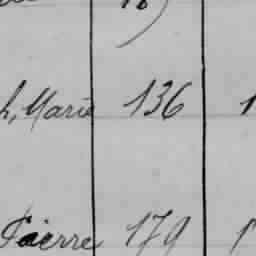 h, Marie 136 1
Pierre 179 1